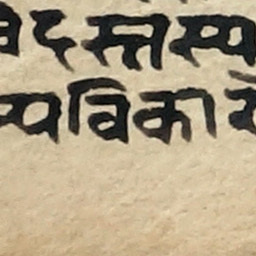 वेदस्तस्य
स्यविका